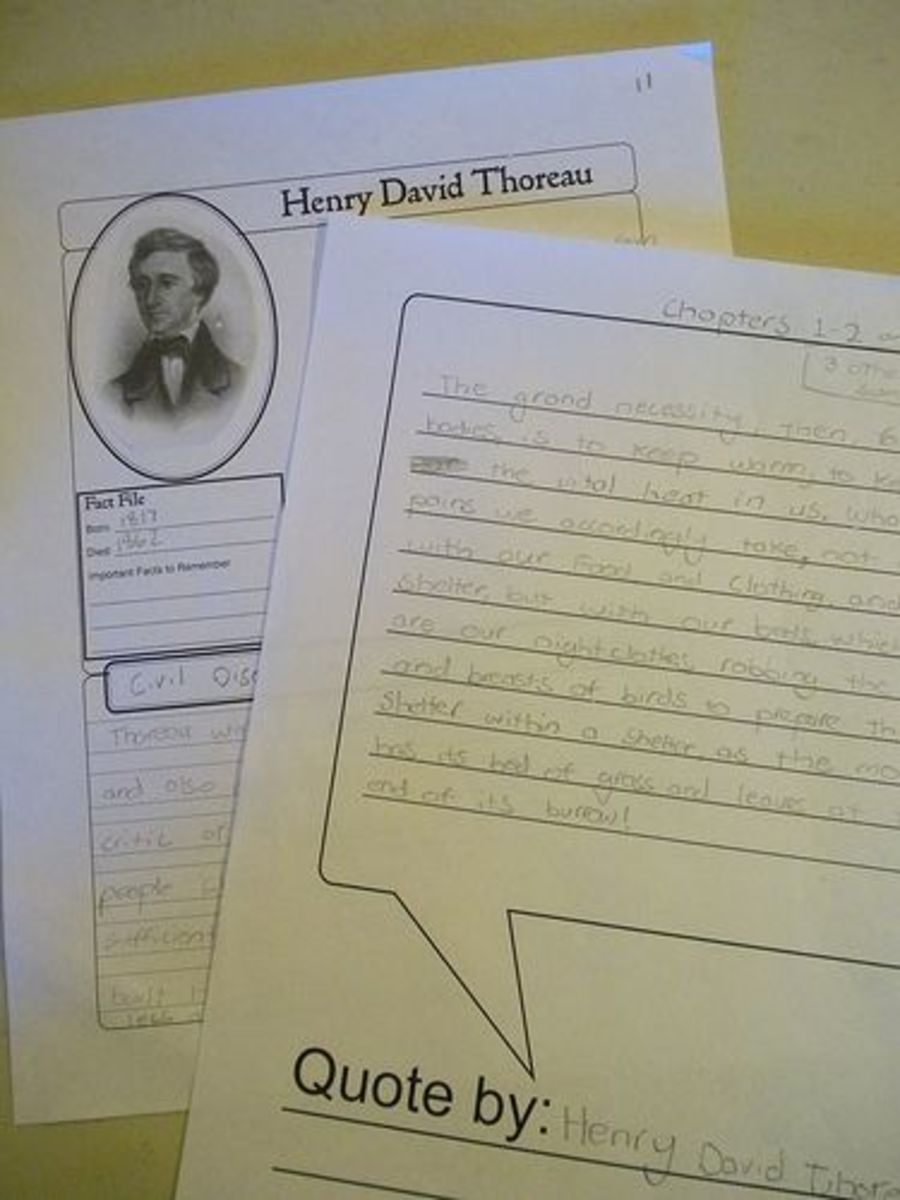 11
Henry David Thoreau
Fact File
Born: 1817
Died: 1862
Important Facts to Remember
Civil Dis
Thoreau
and also
critic of
people
sufficient
built
Chapters 1-2
3
The grand necessity, then,
bodies, is to keep warm, to
the vital heat in us. What
pains we accordingly take, not
with our Food and Clothing, and
Shelter, but with our beds, which
are our nightclothes, robbing the
and breasts of birds to prepare
Shelter within a shelter, as the mo
has its bed of grass and leaves at
end of its burrow!
Quote by: Henry David Thorea